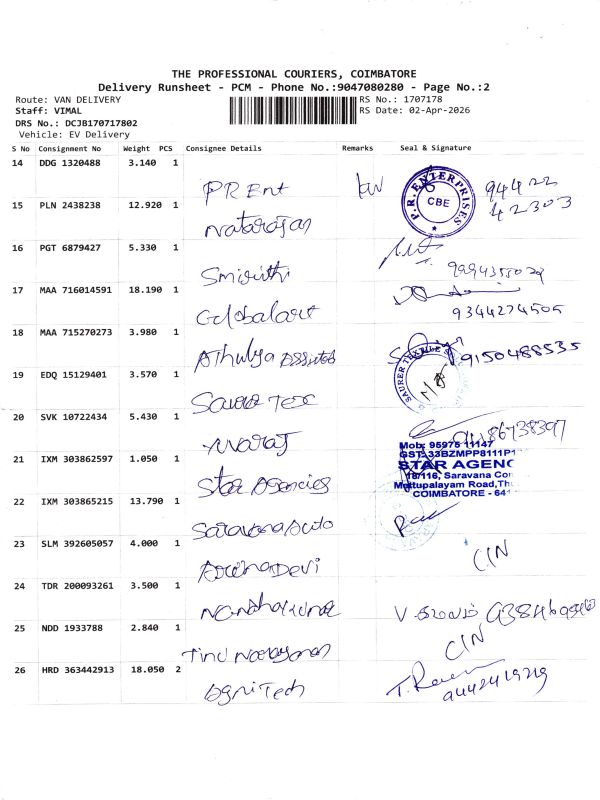 THE PROFESSIONAL COURIERS, COIMBATORE
Delivery Runsheet - PCM - Phone No.:9047080280 - Page No.:2
Route: VAN DELIVERY RS No.: 1707178
Staff: VIMAL RS Date: 02-Apr-2026
DRS No.: DCJB170717802
Vehicle: EV Delivery
S No Consignment No Weight PCS Consignee Details Remarks Seal & Signature
14 DDG 1320488 3.140 1
PR Ent P.R. ENTERPRISES CBE 94422
42303
15 PLN 2438238 12.920 1
Natarajan
16 PGT 6879427 5.330 1
Smiruthi
17 MAA 716014591 18.190 1
Globalart 9344274505
18 MAA 715270273 3.980 1
Athulya Assisted 9150488535
19 EDQ 15129401 3.570 1
Saurer Tex SAURER TEXTILE
20 SVK 10722434 5.430 1
Yuvaraj
21 IXM 303862597 1.050 1
Mob: 95975 11147
GST: 33BZMPP8111P1
STAR AGENC
18/116, Saravana Con
Mettupalayam Road, Thu
COIMBATORE - 641
Star Agencies
22 IXM 303865215 13.790 1
Saravana Auto
23 SLM 392605057 4.000 1
Aruna Devi CIN
24 TDR 200093261 3.500 1
Nandhakumar
25 NDD 1933788 2.840 1
Tinu Narayanan CIN
26 HRD 363442913 18.050 2
AgniTech